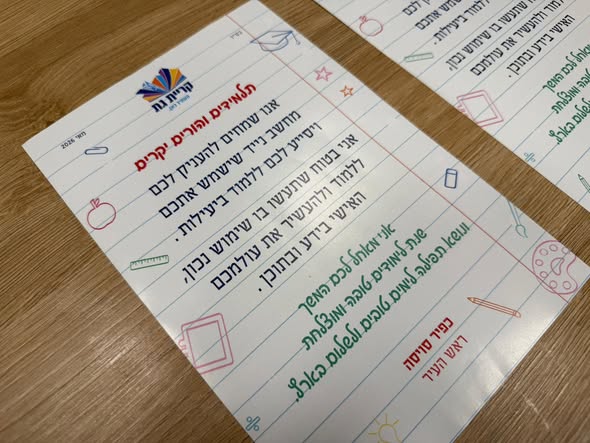 בס"ד
קרית גת
מאי 2026
תלמידים והורים יקרים
אנו שמחים להעניק לכם
מחשב נייד שישמש אתכם
ויסייע לכם ללמוד ביעילות.
אני בטוח שתעשו בו שימוש נכון,
ללמוד ולהעשיר את עולמכם
האישי בידע ובתוכן.
אני מאחל לכם המשך
שנת לימודים טובה ומוצלחת
ונושא תפילה לימים טובים ולשלום בארץ.
כפיר סויסה
ראש העיר
ללמוד ולהעשיר את עולמכם
האישי בידע ובתוכן.